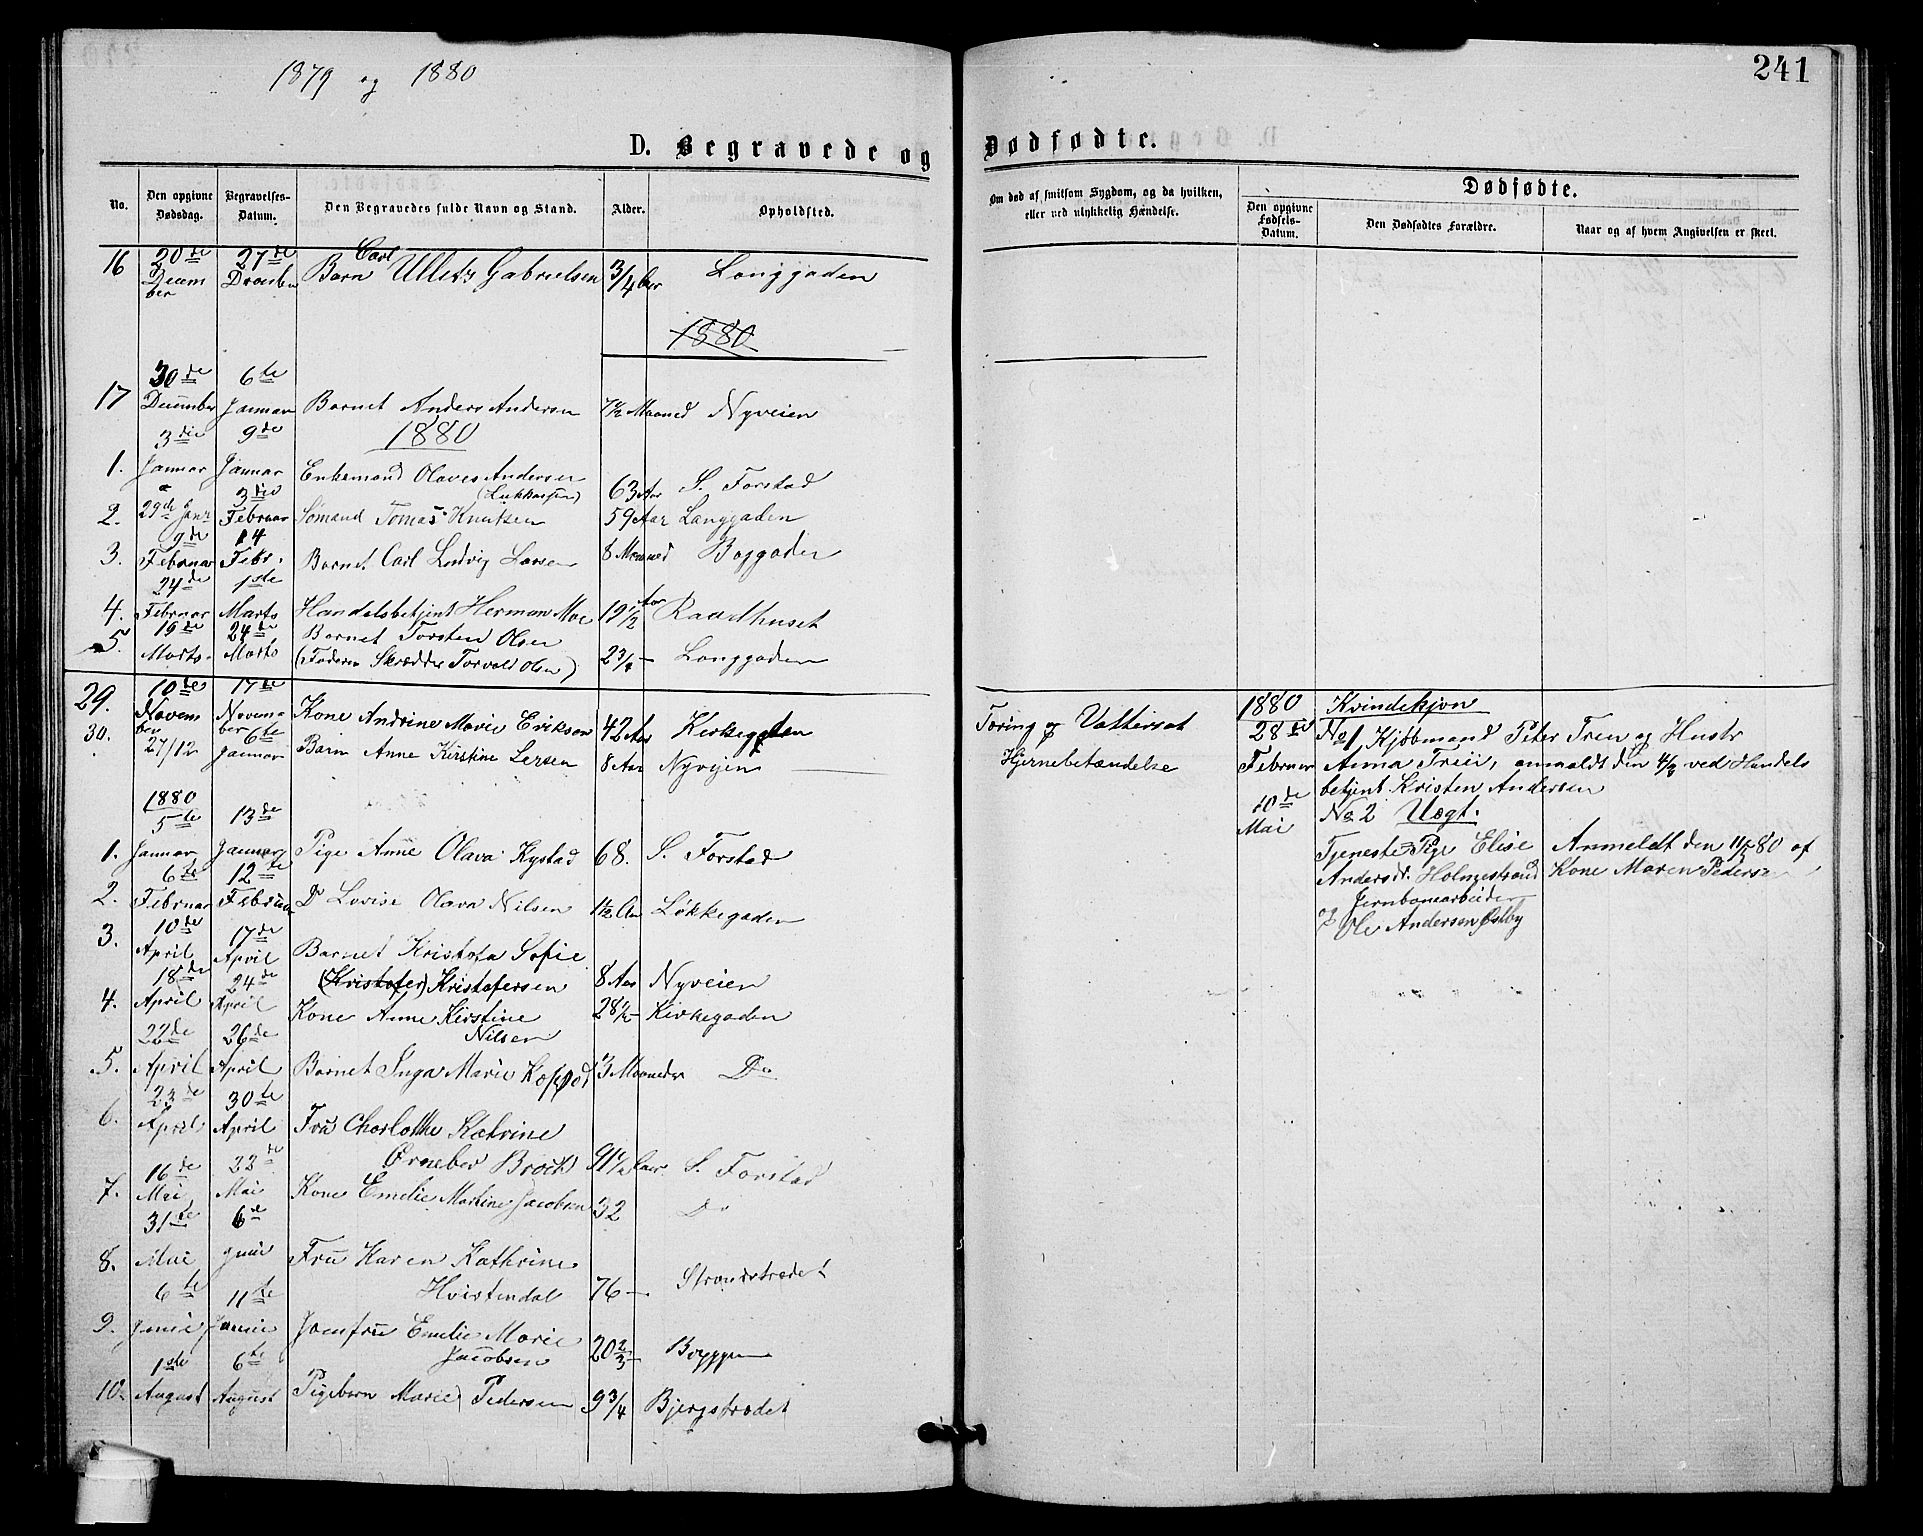 1879 og 1880
241
D. Begravede og Dødfødte.
No.
Den opgivne Dødsdag.
Begravelses-Datum.
Den Begravedes fulde Navn og Stand.
Alder.
Opholdsted.
Om død af smitsom Sygdom, og da hvilken, eller ved ulykkelig Hændelse.
Dødfødte.
Den opgivne Fødsels-Datum.
Den Dødfødtes Forældre.
Naar og af hvem Angivelsen er skeet.
16 20de December 27de Barn Carl Gabrielsen 3/4 Langgaden
1880
17 30de December 6te Januar Barnet Anders Andersen 7½ Maaned Nyveien
1880
1. 3die Januar 9de Januar Enkemand Olaves Andersen 63 Aar S. Forstad
2. 29de Janr 3die Februar Sømand Tomas Knutsen 59 Aar Langgaden
3. 9de Februar 14 Febr. Barnet Carl Ludvig Larsen 8 Maaned
4. 24de Februar 1ste Marts Handelsbetjent Herman Moe 19½ Aar Raadhuset
5. 19de Marts 24de Marts Barnet Torsten Olsen
(Faderen Skrædder Torvald Olsen) 2 3/4 – Langgaden
29. 10de November 17de November Kone Andrine Marie Eriksen 42 Aar Kirkegaden Tæring og Vattersot
30. 27/12 6te Januar Barn Anne Kirstine Larsen 8 Aar Nyvejen Hjernebetændelse
1880
1. 5te Januar 13de Januar Pige Anne Olava Kystad 68. S. Forstad
2. 6te Februar 12te Februar Do Lovise Olava Nilsen 1½ Aar Løkkegaden
3. 10de April 17de April Barnet Kristofa Sofie
(Kristofer) Kristofersen 8 Aar Nyveien
4. 18de April 24de April Kone Anne Kirstine
Nilsen 28½ – Kirkegaden
5. 22de April 26de April Barnet Inga Marie 13 Maaneder Do
6. 23de April 30te April Fru Charlotte Katrine
Brock 91½ Aar S. Forstad
7. 16de Mai 22de Mai Kone Emelie Martine Jacobsen 32 Do
8. 31te Mai 6te Juni Fru Karen Kathrine
Hvistendal 76 – Strandstrædet
9. 6te Juni 11te Junie Jomfru Emelie Marie
Jacobsen 20 2/3 –
10. 1ste August 6te August Pigebarn Marie Pedersen 9 3/4 Bjergstrædet
1880 Kvindekjøn
28de Februar No 1, Kjøbmand Peter og Hustr
Anna anmeldt den 4/3 ved Handels
betjent Kristen Andersen
10de Mai No 2 Uægt.
Tjeneste Pige Elise Anmeldt den 11/5 80 af
Andersdr. Holmestrand Kone Maren Peders
Jernbanearbeider
Ole Andersen Østby